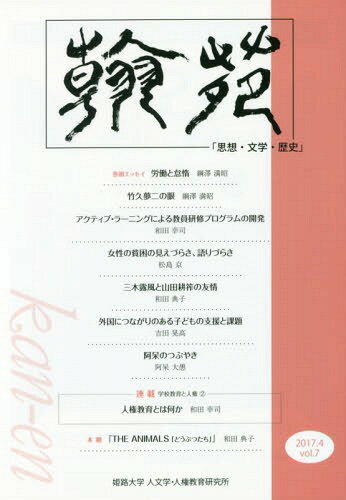 翰苑
「思想・文学・歴史」
巻頭エッセイ 労働と怠惰 綱澤 満昭
竹久夢二の眼 綱澤 満昭
アクティブ・ラーニングによる教員研修プログラムの開発
和田 幸司
女性の貧困の見えづらさ、語りづらさ
松島 京
三木露風と山田耕筰の友情
和田 典子
外国につながりのある子どもの支援と課題
吉田 晃高
阿呆のつぶやき
阿呆 大愚
連載 学校教育と人権 ②
人権教育とは何か 和田 幸司
本棚 『THE ANIMALS「どうぶつたち」』 和田 典子
kan-en
2017.4
vol.7
姫路大学 人文学・人権教育研究所